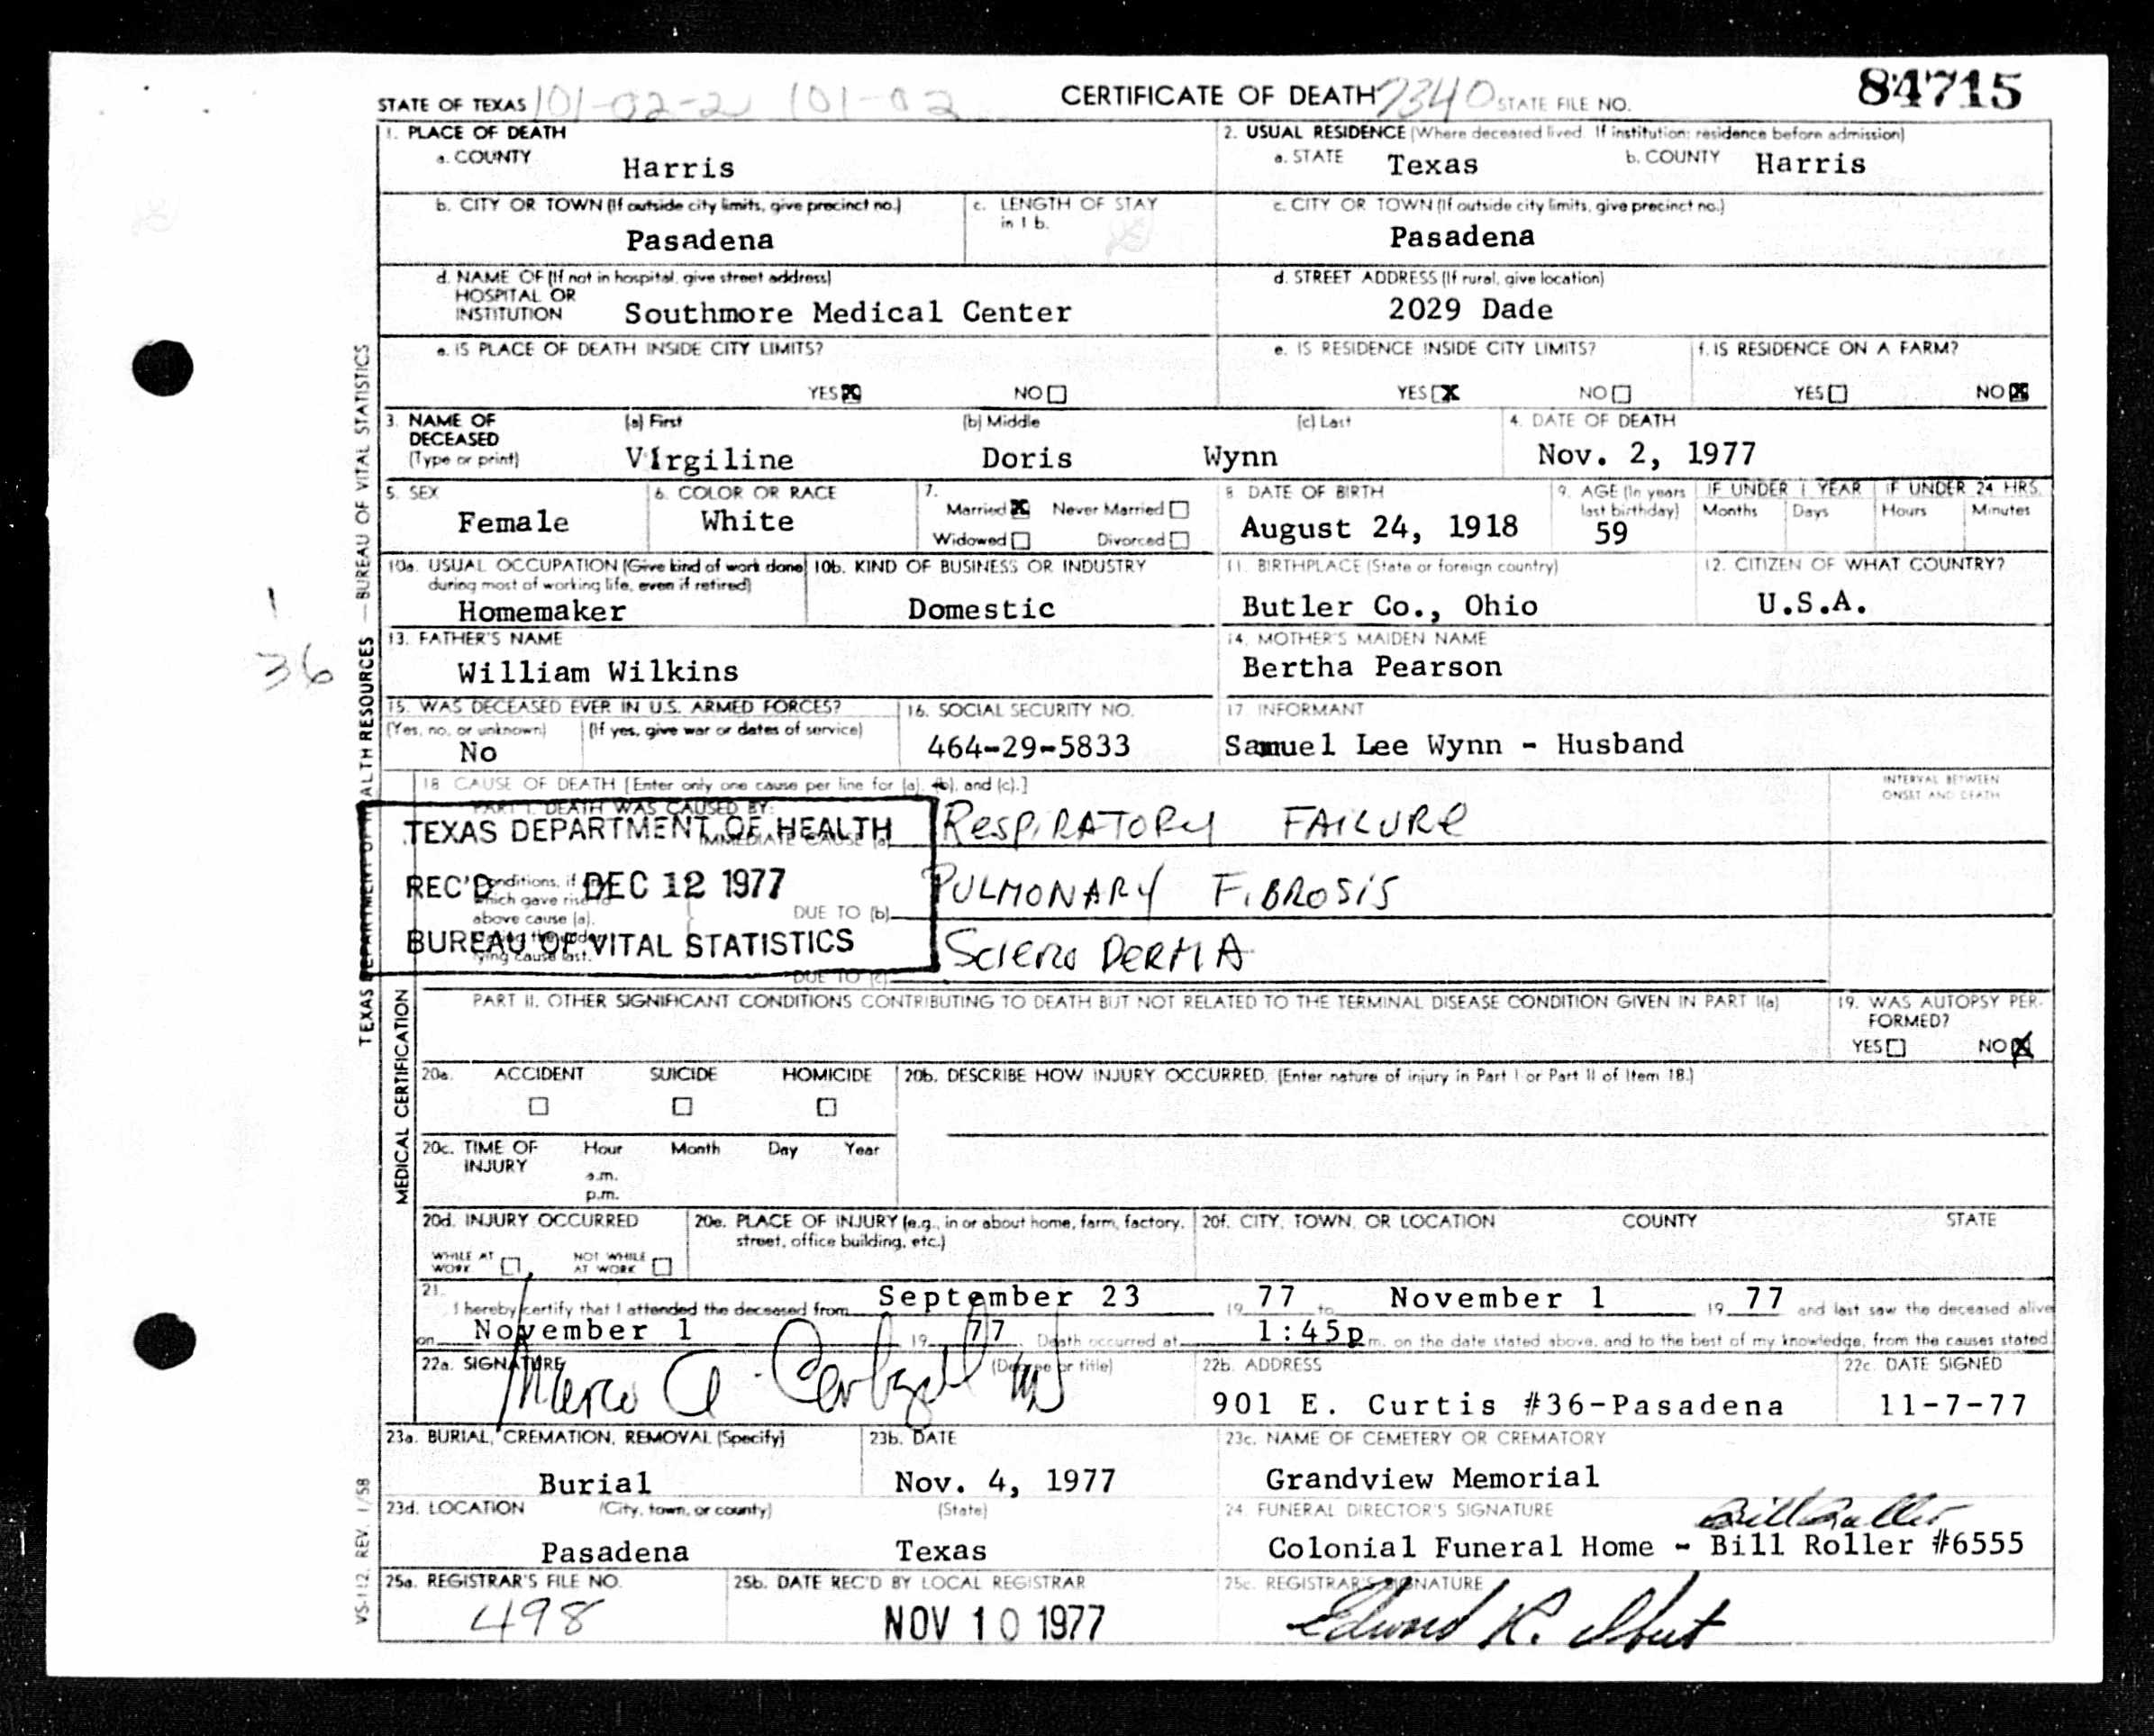 STATE OF TEXAS 101-02-2 101-02 CERTIFICATE OF DEATH 7340 STATE FILE NO. 84715
1. PLACE OF DEATH
a. COUNTY Harris
2. USUAL RESIDENCE (Where deceased lived. If institution: residence before admission)
a. STATE Texas b. COUNTY Harris
b. CITY OR TOWN (If outside city limits, give precinct no.) Pasadena
c. LENGTH OF STAY in 1 b.
c. CITY OR TOWN (If outside city limits, give precinct no.) Pasadena
d. NAME OF (If not in hospital, give street address)
HOSPITAL OR
INSTITUTION Southmore Medical Center
d. STREET ADDRESS (If rural, give location)
2029 Dade
e. IS PLACE OF DEATH INSIDE CITY LIMITS?
YES X NO
e. IS RESIDENCE INSIDE CITY LIMITS?
YES X NO
f. IS RESIDENCE ON A FARM?
YES NO X
3. NAME OF DECEASED (Type or print)
(a) First (b) Middle (c) Last
VIrgiline Doris Wynn
4. DATE OF DEATH
Nov. 2, 1977
5. SEX
Female
6. COLOR OR RACE
White
7.
Married X Never Married
Widowed Divorced
8. DATE OF BIRTH
August 24, 1918
9. AGE (In years last birthday)
59
IF UNDER 1 YEAR
Months Days
IF UNDER 24 HRS.
Hours Minutes
10a. USUAL OCCUPATION (Give kind of work done during most of working life, even if retired)
Homemaker
10b. KIND OF BUSINESS OR INDUSTRY
Domestic
11. BIRTHPLACE (State or foreign country)
Butler Co., Ohio
12. CITIZEN OF WHAT COUNTRY?
U.S.A.
13. FATHER'S NAME
William Wilkins
14. MOTHER'S MAIDEN NAME
Bertha Pearson
15. WAS DECEASED EVER IN U.S. ARMED FORCES?
(Yes, no, or unknown) (If yes, give war or dates of service)
No
16. SOCIAL SECURITY NO.
464-29-5833
17. INFORMANT
Samuel Lee Wynn - Husband
18. CAUSE OF DEATH [Enter only one cause per line for (a), (b), and (c).]
INTERVAL BETWEEN
ONSET AND DEATH
PART I. DEATH WAS CAUSED BY:
IMMEDIATE CAUSE (a) RESPIRATORY FAILURE
TEXAS DEPARTMENT OF HEALTH
REC'D DEC 12 1977
BUREAU OF VITAL STATISTICS
DUE TO (b) PULMONARY FIBROSIS
DUE TO (c) SCLERO DERMA
PART II. OTHER SIGNIFICANT CONDITIONS CONTRIBUTING TO DEATH BUT NOT RELATED TO THE TERMINAL DISEASE CONDITION GIVEN IN PART I(a)
19. WAS AUTOPSY PERFORMED?
YES NO X
20a. ACCIDENT SUICIDE HOMICIDE
20b. DESCRIBE HOW INJURY OCCURRED. (Enter nature of injury in Part I or Part II of Item 18.)
20c. TIME OF INJURY
Hour Month Day Year
a.m.
p.m.
20d. INJURY OCCURRED
WHILE AT WORK NOT WHILE AT WORK
20e. PLACE OF INJURY (e.g., in or about home, farm, factory, street, office building, etc.)
20f. CITY, TOWN, OR LOCATION COUNTY STATE
21. I hereby certify that I attended the deceased from September 23 19 77 to November 1 19 77 and last saw the deceased alive
on November 1 19 77. Death occurred at 1:45p m. on the date stated above, and to the best of my knowledge, from the causes stated
22a. SIGNATURE (Degree or title)
22b. ADDRESS
901 E. Curtis #36-Pasadena
22c. DATE SIGNED
11-7-77
23a. BURIAL, CREMATION, REMOVAL (Specify)
Burial
23b. DATE
Nov. 4, 1977
23c. NAME OF CEMETERY OR CREMATORY
Grandview Memorial
23d. LOCATION (City, town, or county) (State)
Pasadena Texas
24. FUNERAL DIRECTOR'S SIGNATURE
Bill Roller
Colonial Funeral Home - Bill Roller #6555
25a. REGISTRAR'S FILE NO.
498
25b. DATE REC'D BY LOCAL REGISTRAR
NOV 10 1977
25c. REGISTRAR'S SIGNATURE
TEXAS DEPARTMENT OF HEALTH RESOURCES — BUREAU OF VITAL STATISTICS
MEDICAL CERTIFICATION
VS-112, REV. 1/58
1
36